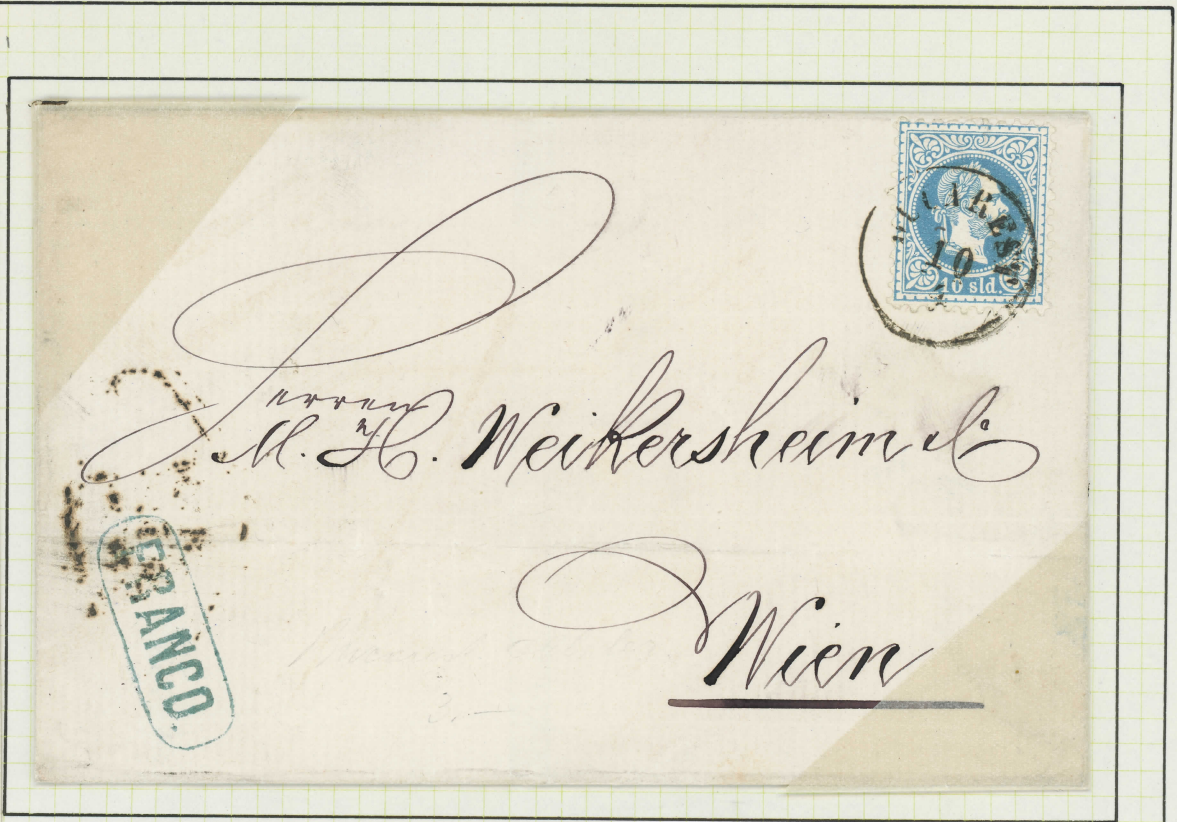 BUCAREST
10
4
10 sld.
Herren
M. H. Weikersheim &
Wien
FRANCO.